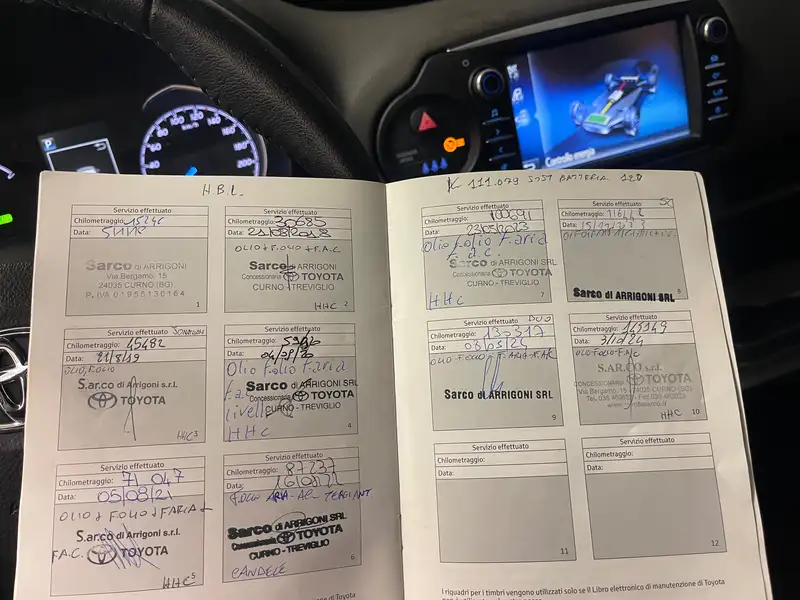 H.B.L
Servizio effettuato
Chilometraggio:
Data:
Sarco di ARRIGONI
Via Bergamo, 15
24035 CURNO (BG)
P. IVA 01955130164
1
Servizio effettuato
Chilometraggio: 30685
Data: 21/08/2018
OLIO + F.OLIO + F.A.C
Sarco di ARRIGONI
Concessionaria TOYOTA
CURNO - TREVIGLIO
HHC 2
Servizio effettuato
Chilometraggio: 45482
Data: 21/8/19
OLIO, F.OLIO
S.ar.co di Arrigoni s.r.l.
TOYOTA
HHC 3
Servizio effettuato
Chilometraggio:
Data: 04/09/20
Olio Folio Faria
f.a.c
Sarco di ARRIGONI SRL
Concessionaria TOYOTA
livelli
CURNO - TREVIGLIO
HHC
4
Servizio effettuato
Chilometraggio: 71.047
Data: 05/08/21
OLIO + FOLIO + FARIA +
S.ar.co di Arrigoni s.r.l.
F.A.C. TOYOTA
HHC 5
Servizio effettuato
Chilometraggio: 87237
Data:
F.OLIO ARIA-AC TERGIANT
Sarco di ARRIGONI SRL
Concessionaria TOYOTA
CURNO - TREVIGLIO
CANDELE
6
K 111.079 SOST BATTERIA 12V
Servizio effettuato
Chilometraggio: 100691
Data: 23/03/2023
Olio folio Faria
f.a.c.
Sarco di ARRIGONI SRL
Concessionaria TOYOTA
CURNO - TREVIGLIO
HHC
7
Servizio effettuato
Chilometraggio:
Data:
Sarco di ARRIGONI SRL
8
Servizio effettuato
Chilometraggio: 130317
Data: 03/05/24
OLIO-F.OLIO-F.ARIA-F.AC
Sarco di ARRIGONI SRL
9
Servizio effettuato
Chilometraggio: 145149
Data: 3/10/24
OLIO FOLIO-F.A.C
S.AR.CO s.r.l.
CONCESSIONARIA TOYOTA
Via Bergamo, 15 - 24035 CURNO (BG)
HHC
10
Servizio effettuato
Chilometraggio:
Data:
11
Servizio effettuato
Chilometraggio:
Data:
12
I riquadri per i timbri vengono utilizzati solo se il Libro elettronico di manutenzione di Toyota
P
Controllo energia